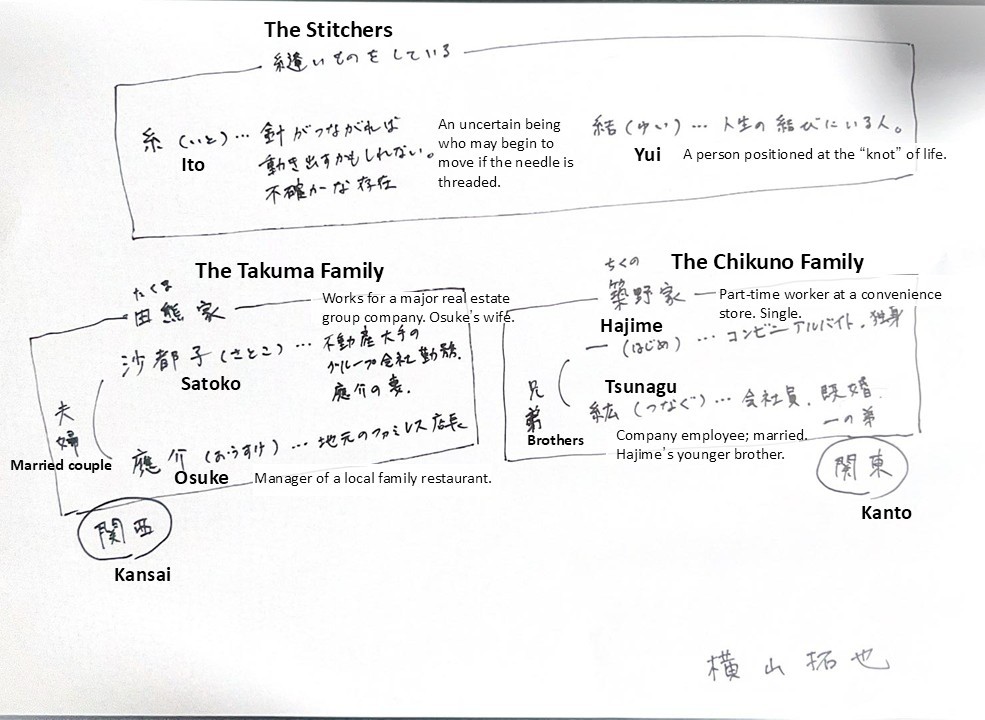 The Stitchers
縫いものをしている
糸(いと)… 針がつながれば
動き出すかもしれない。
不確かな存在
Ito
An uncertain being
who may begin to
move if the needle is
threaded.
結(ゆい)… 人生の結びにいる人。
Yui
A person positioned at the “knot” of life.
The Takuma Family
たくま
田熊家
Works for a major real estate
group company. Osuke's wife.
沙都子(さとこ)… 不動産大手の
グループ会社勤務.
應介の妻.
Satoko
夫婦
Married couple
應介(おうすけ)… 地元のファミレス店長
Osuke
Manager of a local family restaurant.
関西
Kansai
The Chikuno Family
ちくの
築野家
Part-time worker at a convenience
store. Single.
Hajime
一(はじめ)… コンビニアルバイト.独身
兄弟
Brothers
Tsunagu
紘(つなぐ)… 会社員.既婚.
一の弟
Company employee; married.
Hajime's younger brother.
関東
Kanto
横山拓也